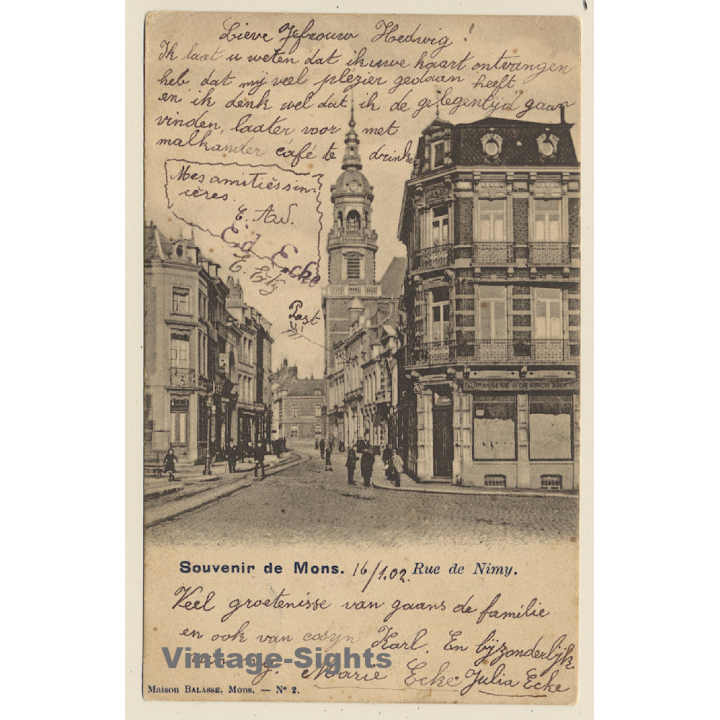 Lieve Jefrouw Hedwig!
Ik laat u weten dat ik uwe kaart ontvangen
heb dat mij veel plezier gedaan heeft
en ik denk wel dat ik de gelegentijd gaan
vinden, laater voor met
malkander café te drinke
Mes amitiés sin-
cères.
E. Aud.
Ed Ecke
E. Ek
Post
BRASSERIE
Souvenir de Mons. 16/1.02. Rue de Nimy.
Veel groetenisse van gaans de familie
en ook van cosyn Karl. En bijzonderlijk
van mij. Marie Ecke Julia Ecke
Vintage-Sights
Maison BALASSE, Mons. — N° 2.